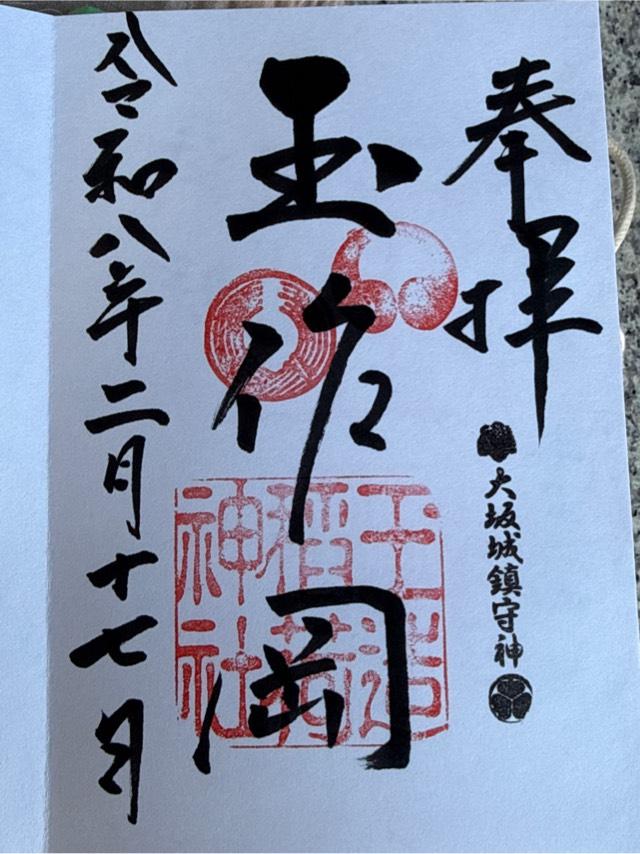 奉拝
大坂城鎮守神
玉作岡
玉造
稲荷
神社
令和八年二月十七日